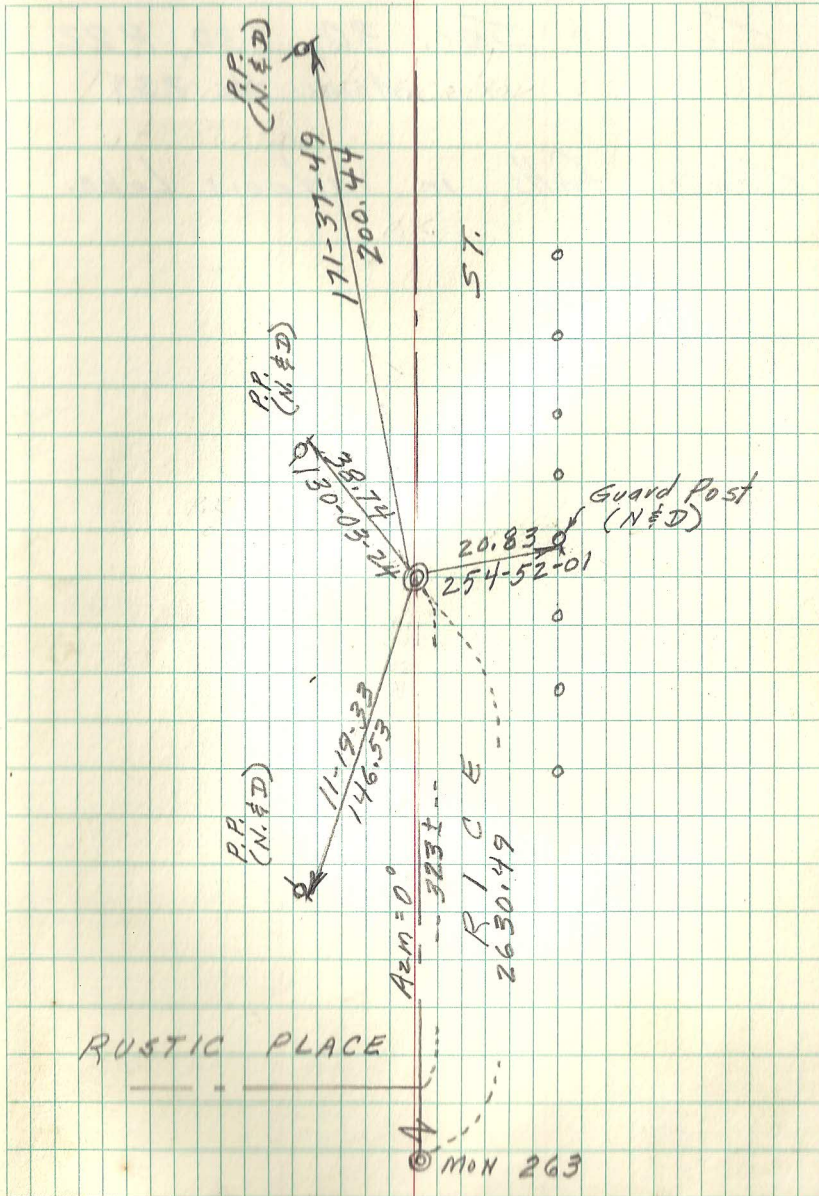 P.P.
(N. & D)
171-37-49
200.44
ST.
P.P.
(N. & D)
38.74
130-03-24
Guard Post
(N & D)
20.83
254-52-01
11-19-33
146.53
P.P.
(N. & D)
Azm = 0°
323±
RICE
2630.49
RUSTIC PLACE
MON 263